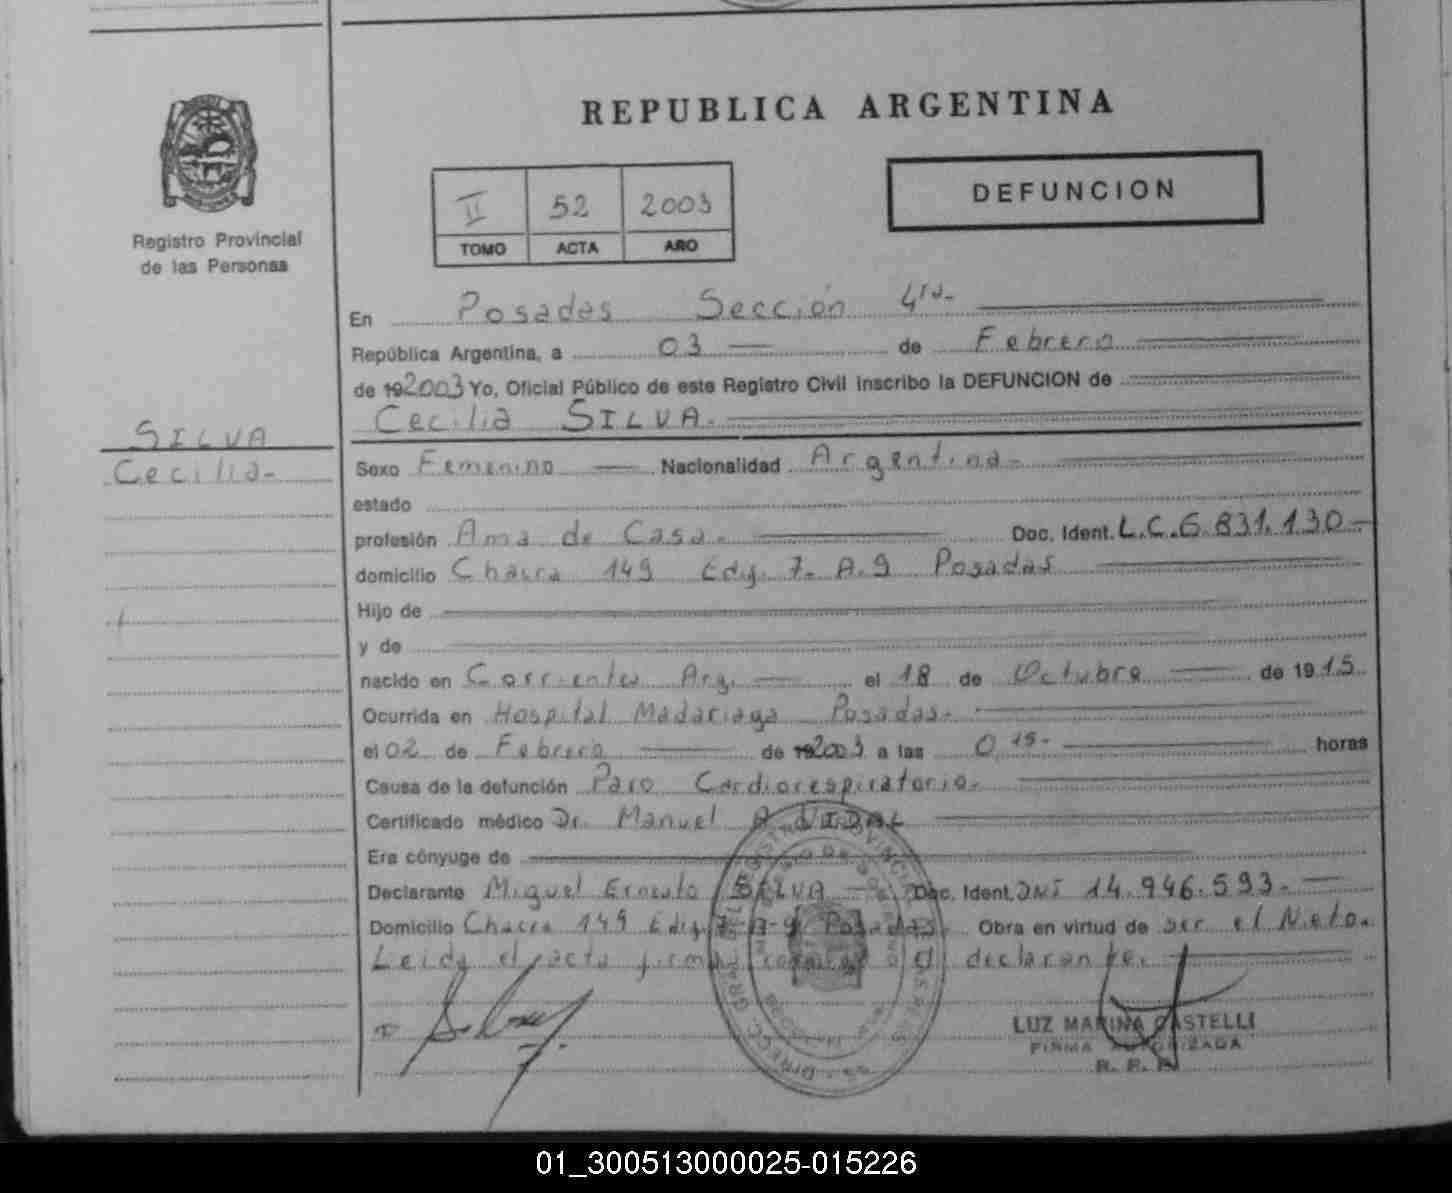 REPUBLICA ARGENTINA
Registro Provincial
de las Personas
II 52 2003
TOMO ACTA AÑO
DEFUNCION
SILVA
Cecilia-
En Posadas Sección 4ta-
República Argentina, a 03 — de Febrero
de 192003 Yo, Oficial Público de este Registro Civil inscribo la DEFUNCION de
Cecilia SILVA.
Sexo Femenino — Nacionalidad Argentina-
estado
profesión Ama de Casa. Doc. Ident. L.C.6.831.130-
domicilio Chacra 149 Edif. 7- A.9 Posadas
Hijo de
y de
nacido en Corrientes Arg. — el 18 de Octubre — de 1915.
Ocurrida en Hospital Madariaga Posadas-
el 02 de Febrero — de 192003 a las 0,15- horas
Causa de la defunción Paro Cardiorespiratorio-
Certificado médico Dr. Manuel A VIDAL
Era cónyuge de
Declarante Miguel Ernesto SILVA — Doc. Ident. DNI 14.946.593.-
Domicilio Chacra 149 Edif 7-A-9 Posadas. Obra en virtud de ser el Nieto.
Leida el acta firma el declarante.
LUZ MARINA CASTELLI
FIRMA AUTORIZADA
R. P. P.
01_300513000025-015226